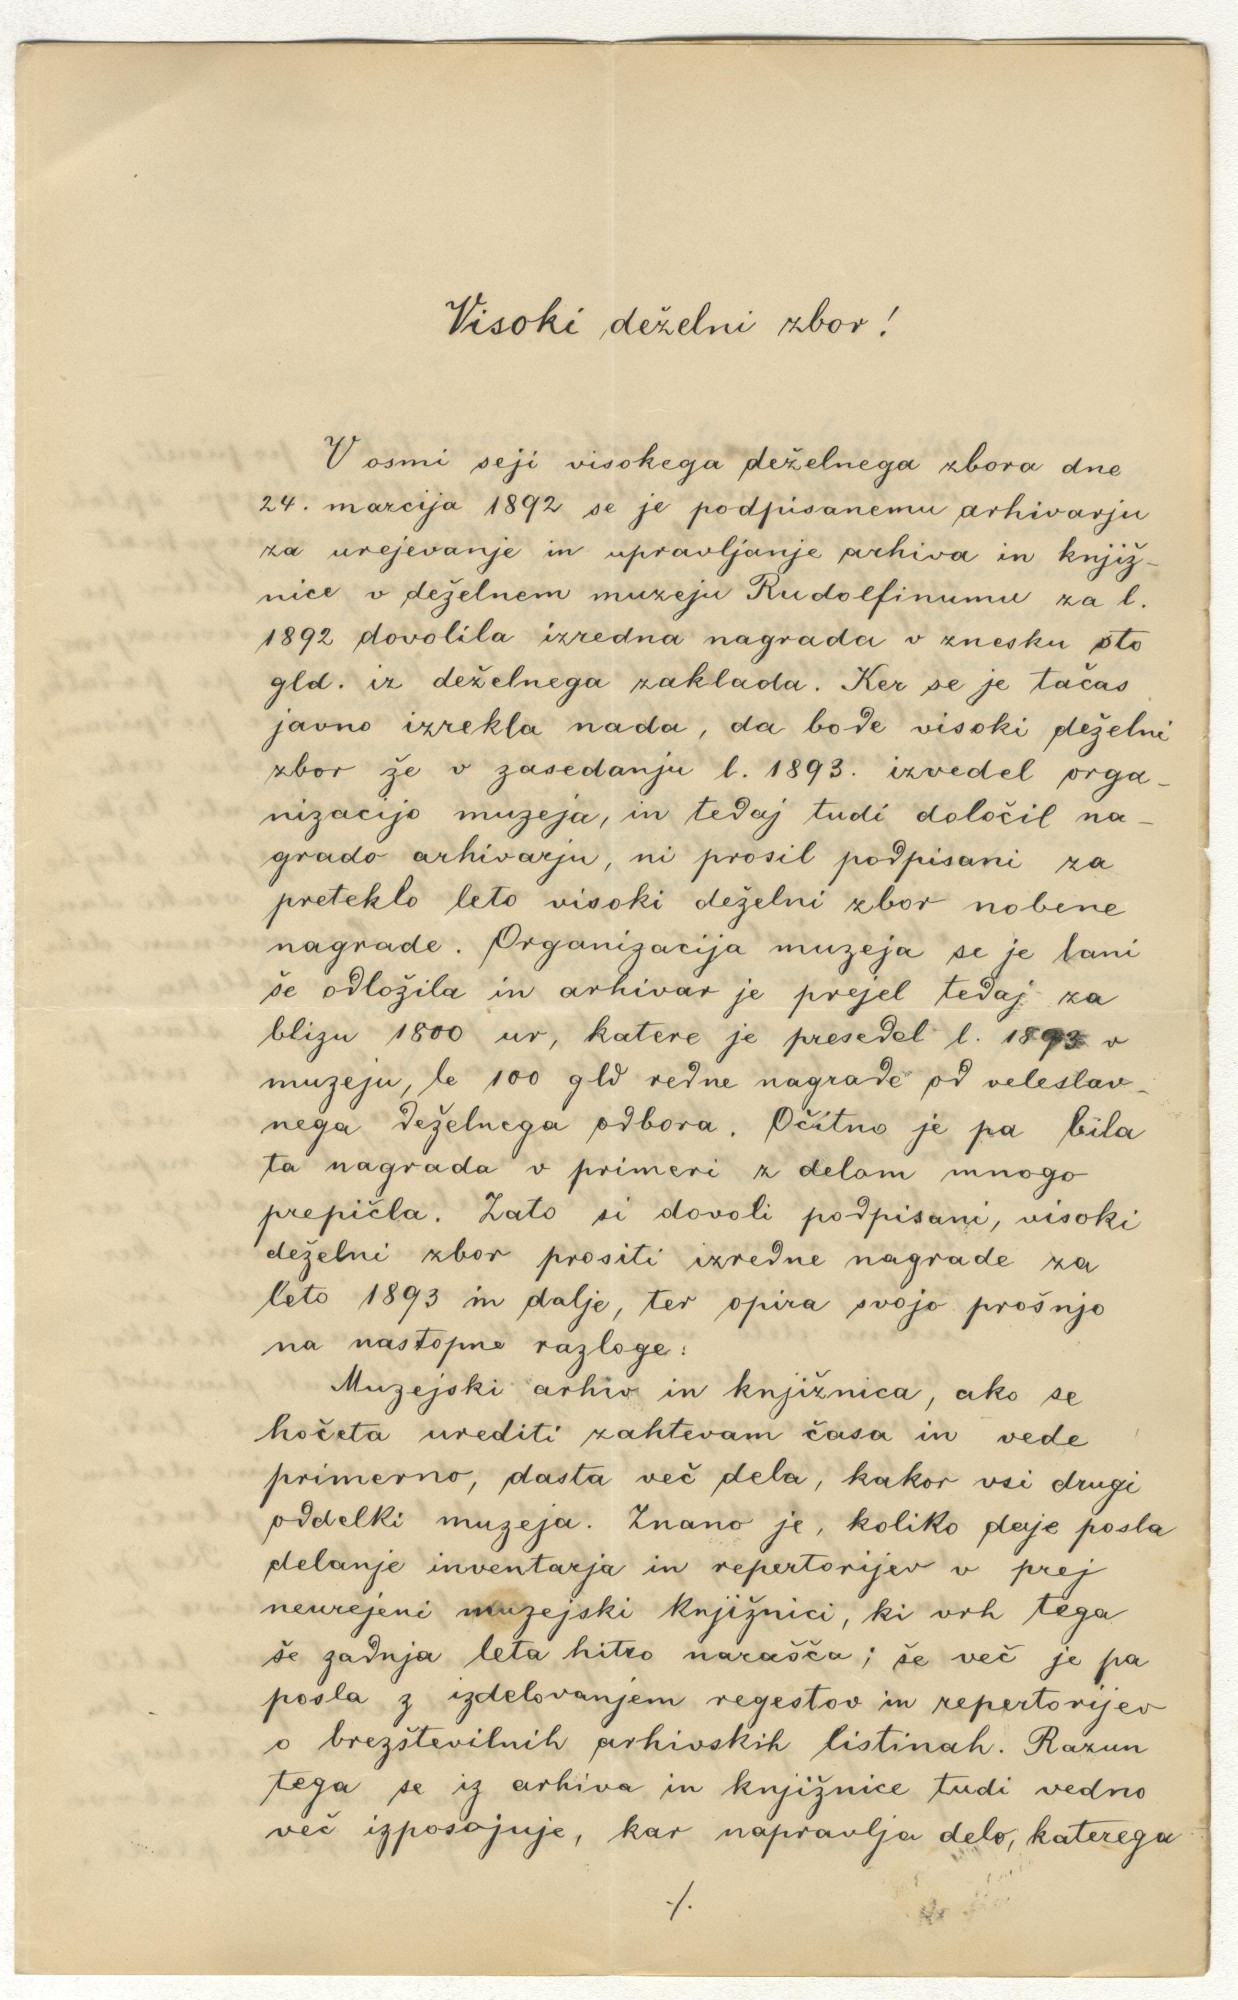 Visoki deželni zbor!
V osmi seji visokega deželnega zbora dne
24. marcija 1892 se je podpisanemu arhivarju
za urejevanje in upravljanje arhiva in knjiž-
nice v deželnem muzeju Rudolfinumu za l.
1892 dovolila izredna nagrada v znesku sto
gld. iz deželnega zaklada. Ker se je tačas
javno izrekla nada, da bode visoki deželni
zbor že v zasedanju l. 1893. izvedel orga-
nizacijo muzeja, in tedaj tudi določil na-
grado arhivarju, ni prosil podpisani za
preteklo leto visoki deželni zbor nobene
nagrade. Organizacija muzeja se je lani
še odložila in arhivar je prejel tedaj za
blizu 1800 ur, katere je presedel l. 1893 v
muzeju, le 100 gld redne nagrade od veleslav-
nega deželnega odbora. Očitno je pa bila
ta nagrada v primeri z delom mnogo
prepičla. Zato si dovoli podpisani, visoki
deželni zbor prositi izredne nagrade za
leto 1893 in dalje, ter opira svojo prošnjo
na nastopne razloge:
Muzejski arhiv in knjižnica, ako se
hočeta urediti zahtevam časa in vede
primerno, dasta več dela, kakor vsi drugi
oddelki muzeja. Znano je, koliko daje posla
delanje inventarja in repertorijev v prej
neurejeni muzejski knjižnici, ki vrh tega
še zadnja leta hitro narašča; še več je pa
posla z izdelovanjem regestov in repertorijev
o brezštevilnih arhivskih listinah. Razun
tega se iz arhiva in knjižnice tudi vedno
več izposojuje, kar napravlja delo, katerega
./.